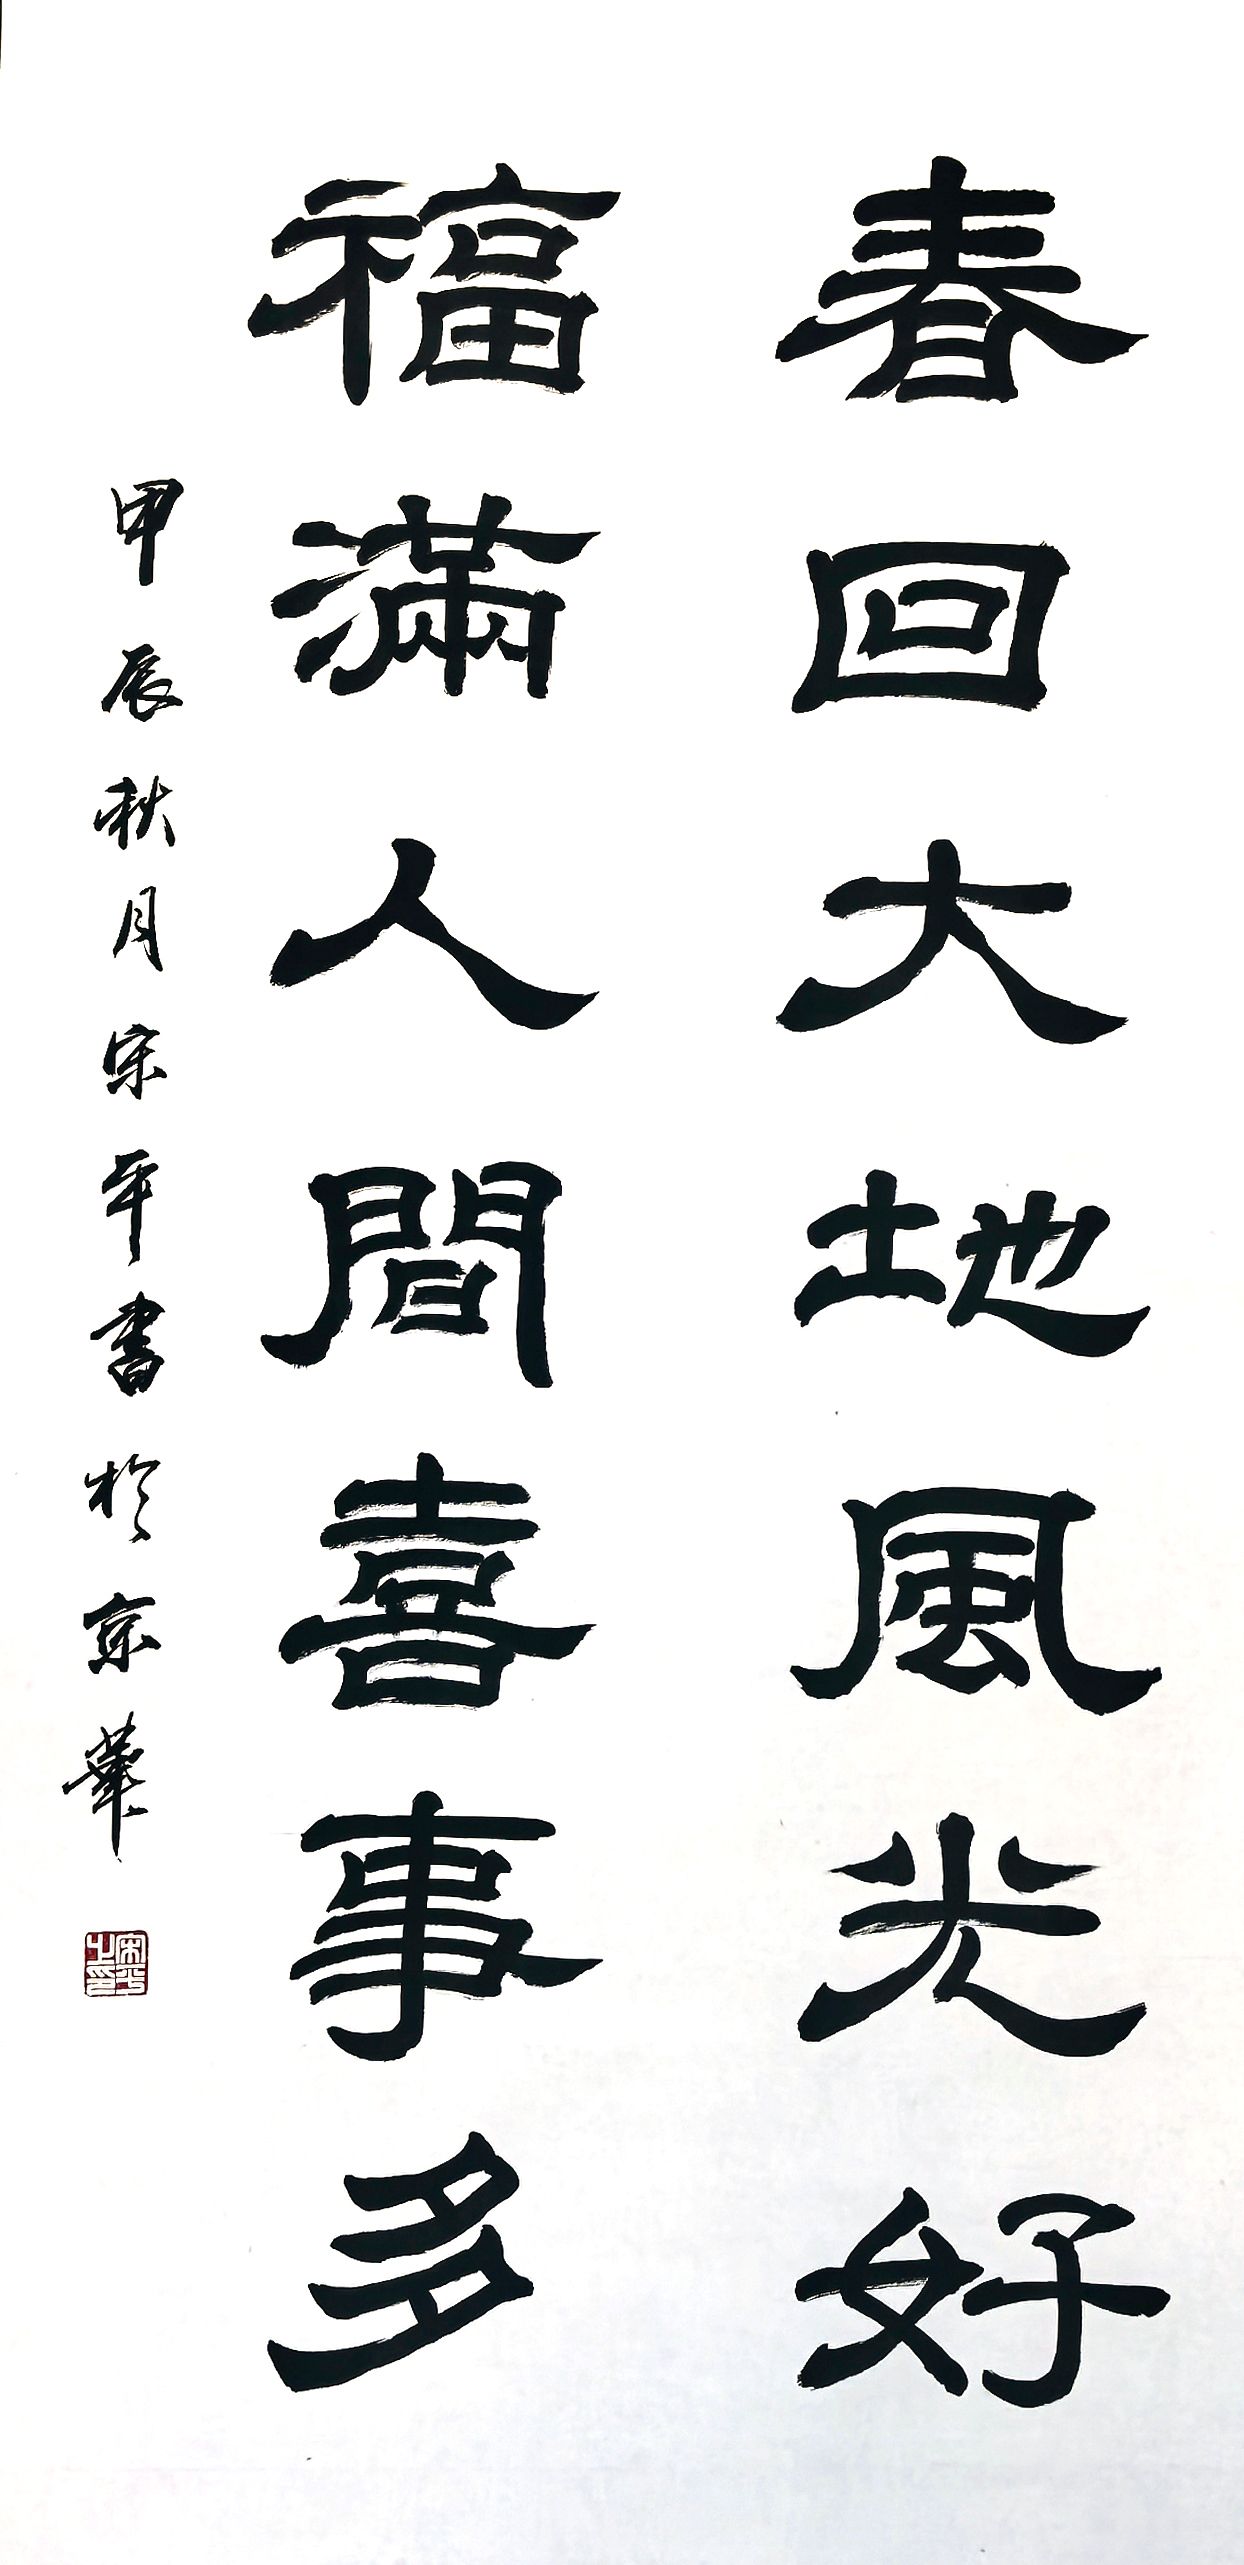 春回大地風光好
福滿人間喜事多
甲辰秋月宋平書於京華
宋平之印